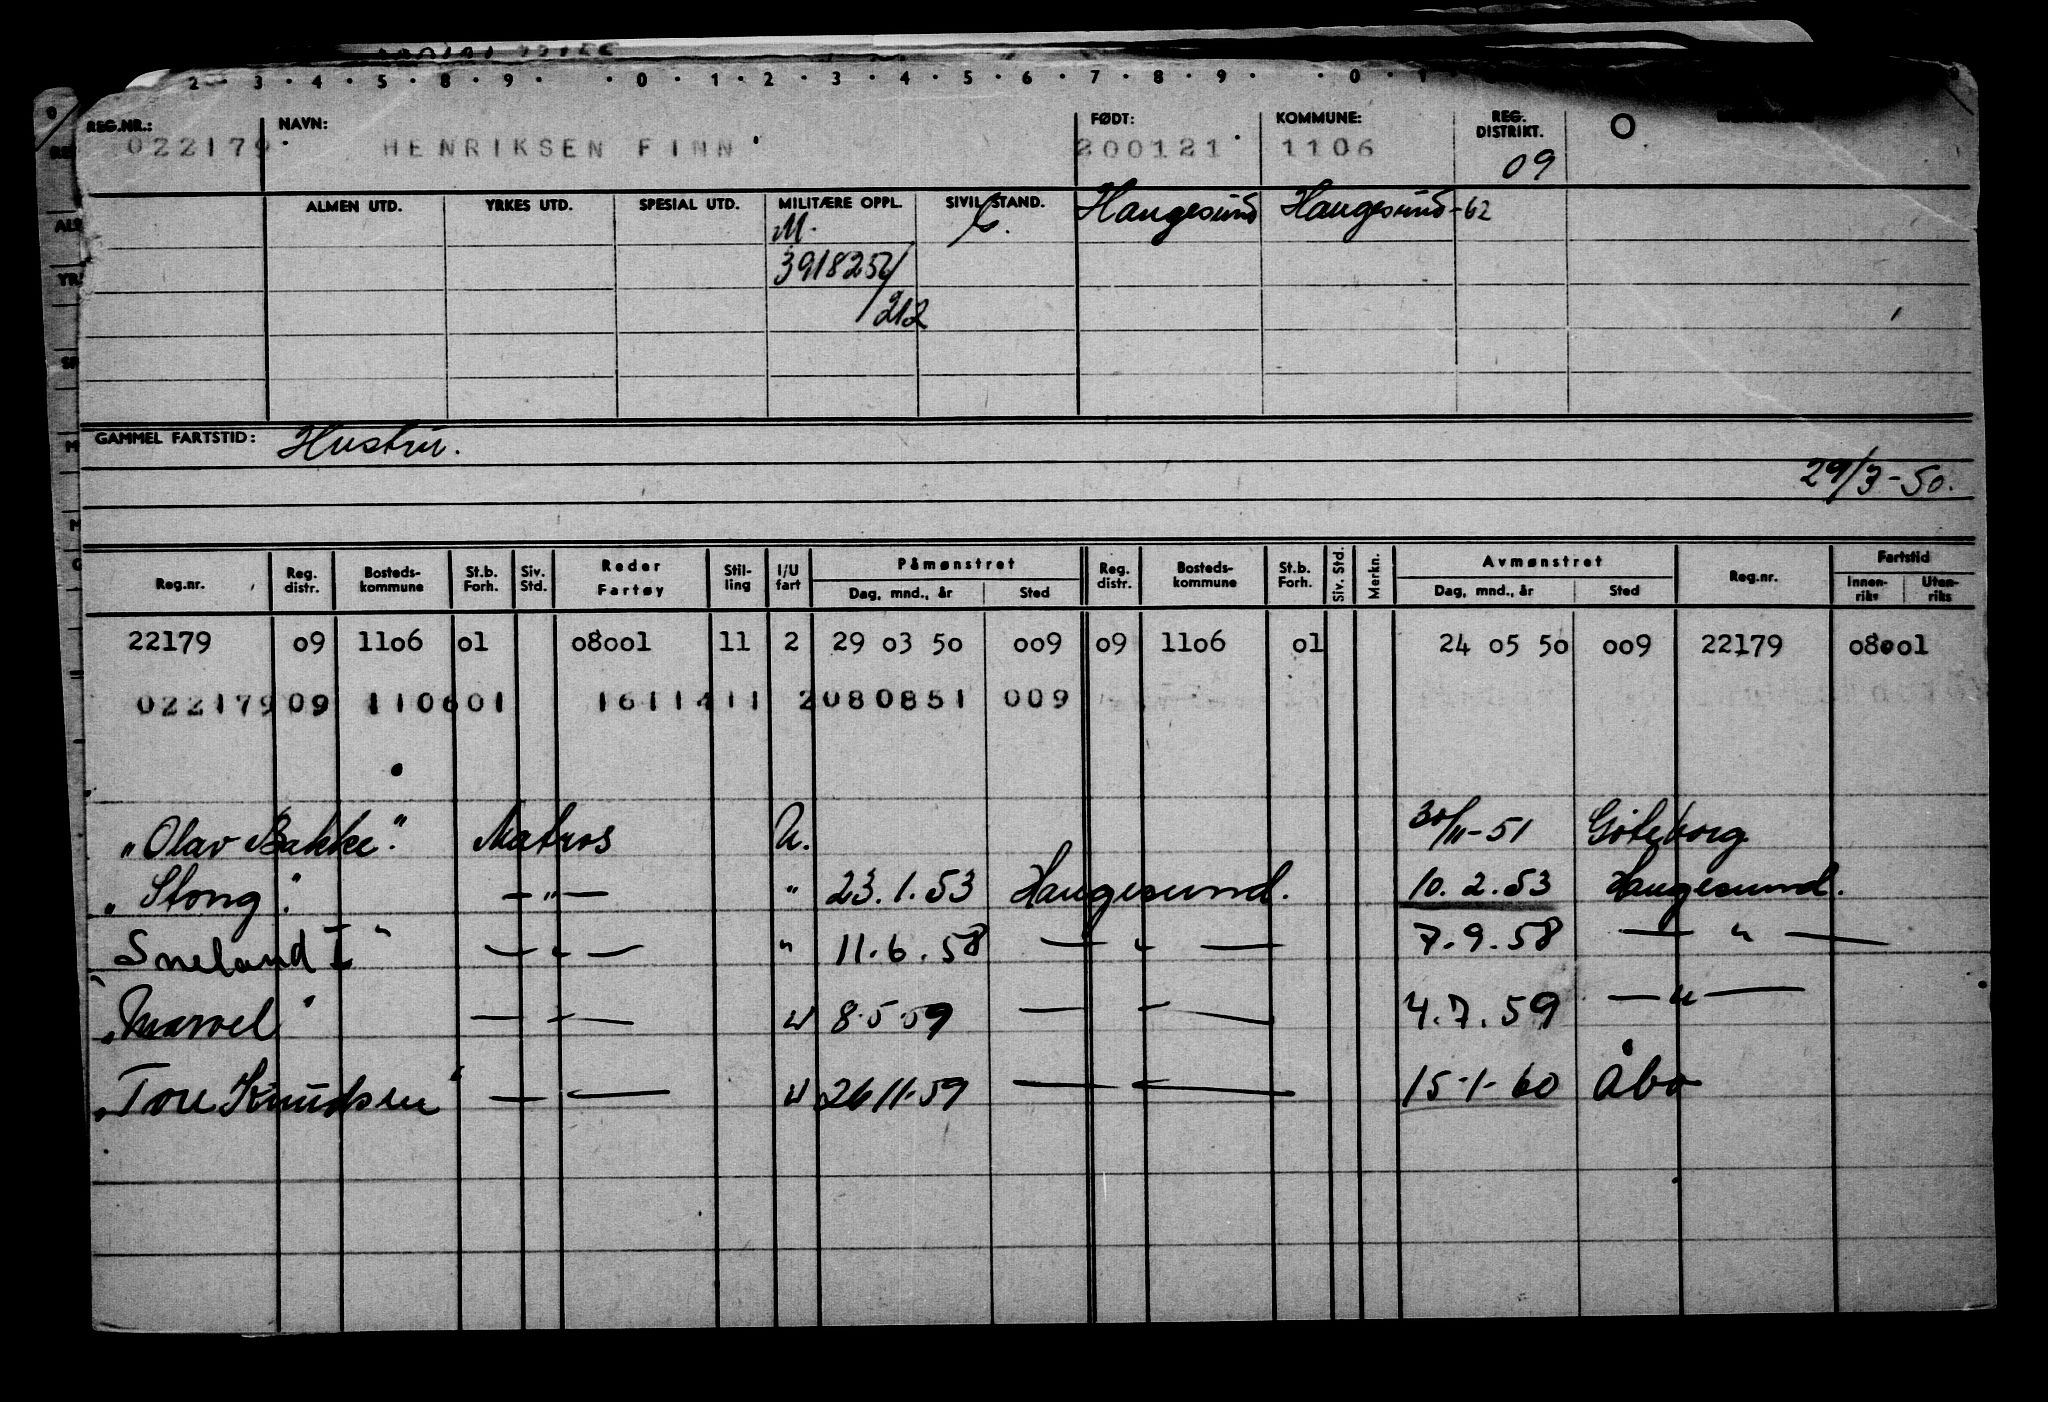 2 · 3 · 4 · 5 · 8 · 9 · · 0 · 1 · 2 · 3 · 4 · 5 · 6 · 7 · 8 · 9 · · 0 · 1
REG.NR.: NAVN: FØDT: KOMMUNE: REG. DISTRIKT.
022179 HENRIKSEN FINN 200121 1106 09 O
ALMEN UTD. YRKES UTD. SPESIAL UTD. MILITÆRE OPPL. SIVIL STAND. Haugesund Haugesund-62
M.
391825
/212
GAMMEL FARTSTID: Hustru.
29/3-50.
Reg.nr. Reg. distr. Bosteds-kommune St.b. Forh. Siv. Std. Reder Fartøy Stil-ling I/U fart Påmønstret Dag, mnd., år Sted Reg. distr. Bosteds-kommune St.b. Forh. Siv. Std. Merkn. Avmønstret Dag, mnd., år Sted Reg.nr. Fartstid Innen-riks Uten-riks
22179 09 1106 01 08001 11 2 29 03 50 009 09 1106 01 24 05 50 009 22179 08001
022179 09 110601 1611411 2080851 009
"Olav Bakke". Matros U. 30/11-51 Göteborg
"Stong". — " — " 23.1.53 Haugesund. 10.2.53 Haugesund.
Sneland I" — " — " 11.6.58 — " — 7.9.58 — " —
"Marvel" — " — " 8.5.59 — " — 4.7.59 — " —
"Tore Knudsen" — " — " 26.11.59 — " — 15.1.60 Åbo